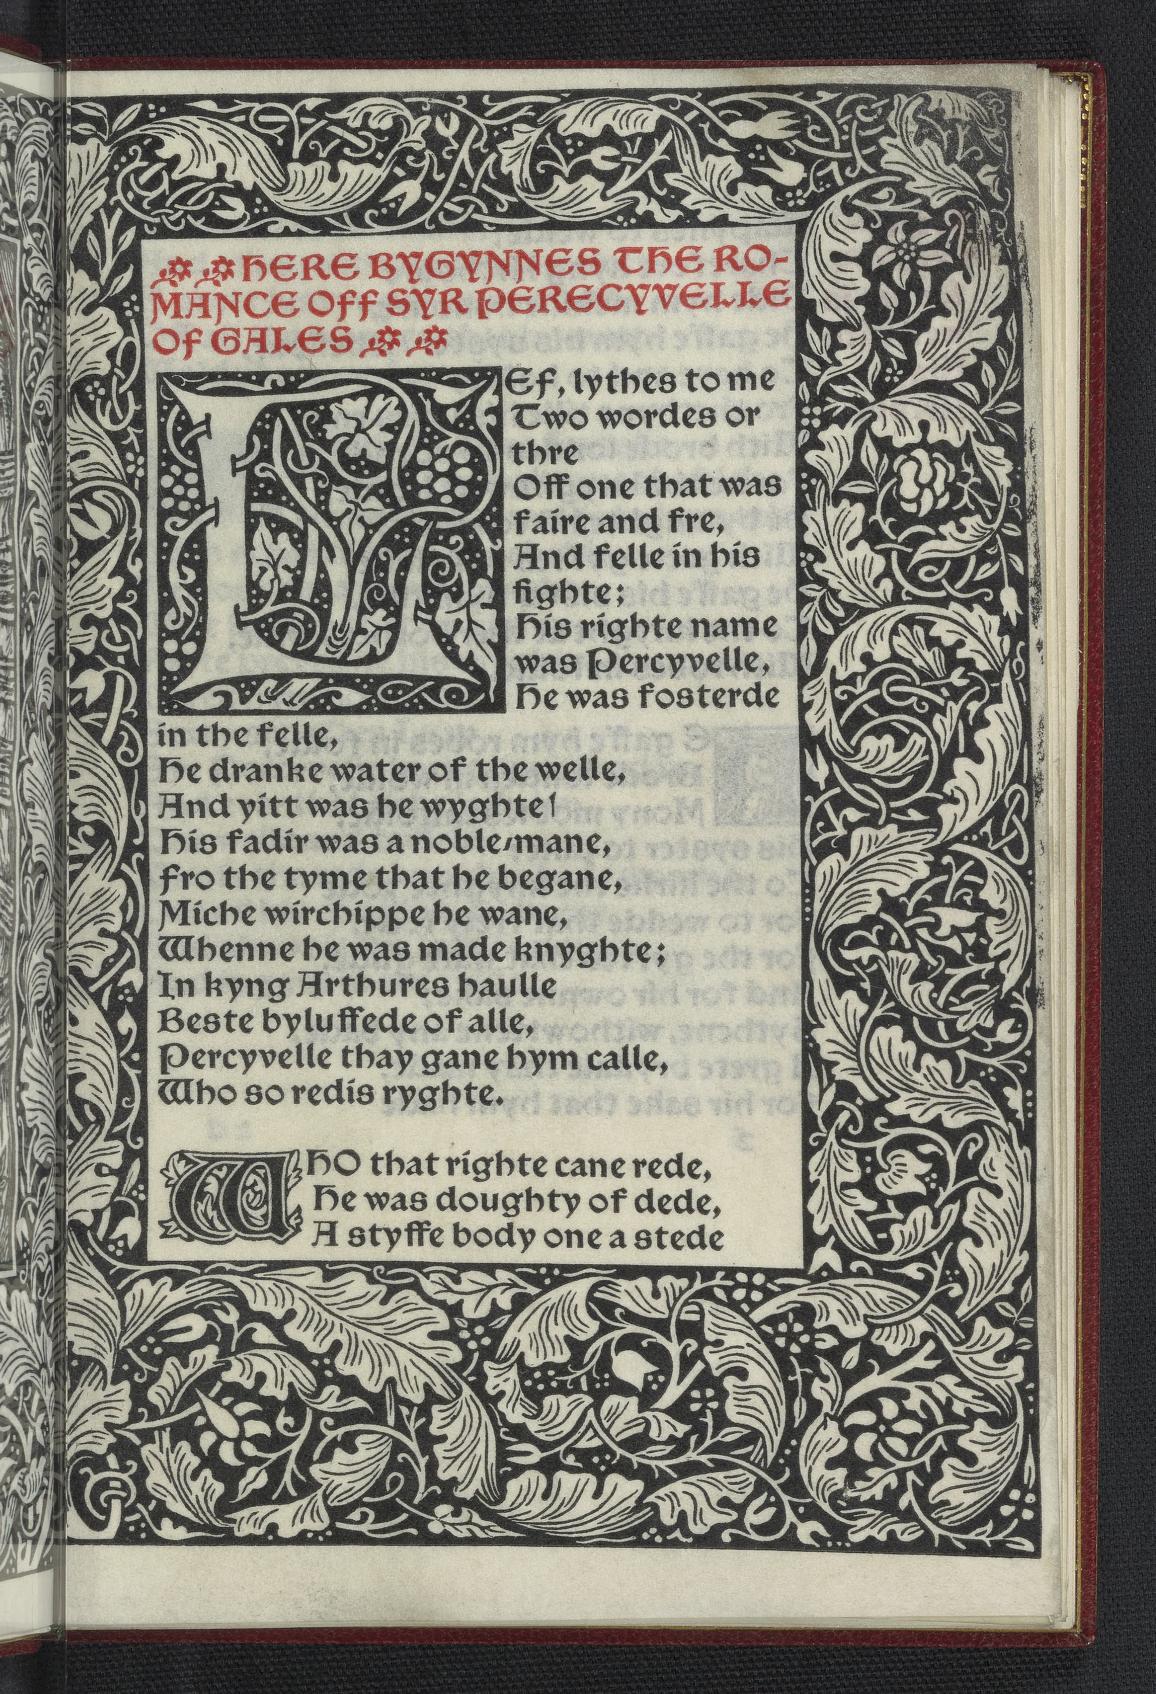 HERE BYGYNNES THE RO-
MANCE OFF SYR PERECYVELLE
OF GALES
LEF, lythes to me
Two wordes or
thre
Off one that was
faire and fre,
And felle in his
fighte;
His righte name
was Percyvelle,
He was fosterde
in the felle,
He dranke water of the welle,
And yitt was he wyghte!
His fadir was a noble-mane,
Fro the tyme that he begane,
Miche wirchippe he wane,
Whenne he was made knyghte;
In kyng Arthures haulle
Beste byluffede of alle,
Percyvelle thay gane hym calle,
Who so redis ryghte.
WHO that righte cane rede,
He was doughty of dede,
A styffe body one a stede